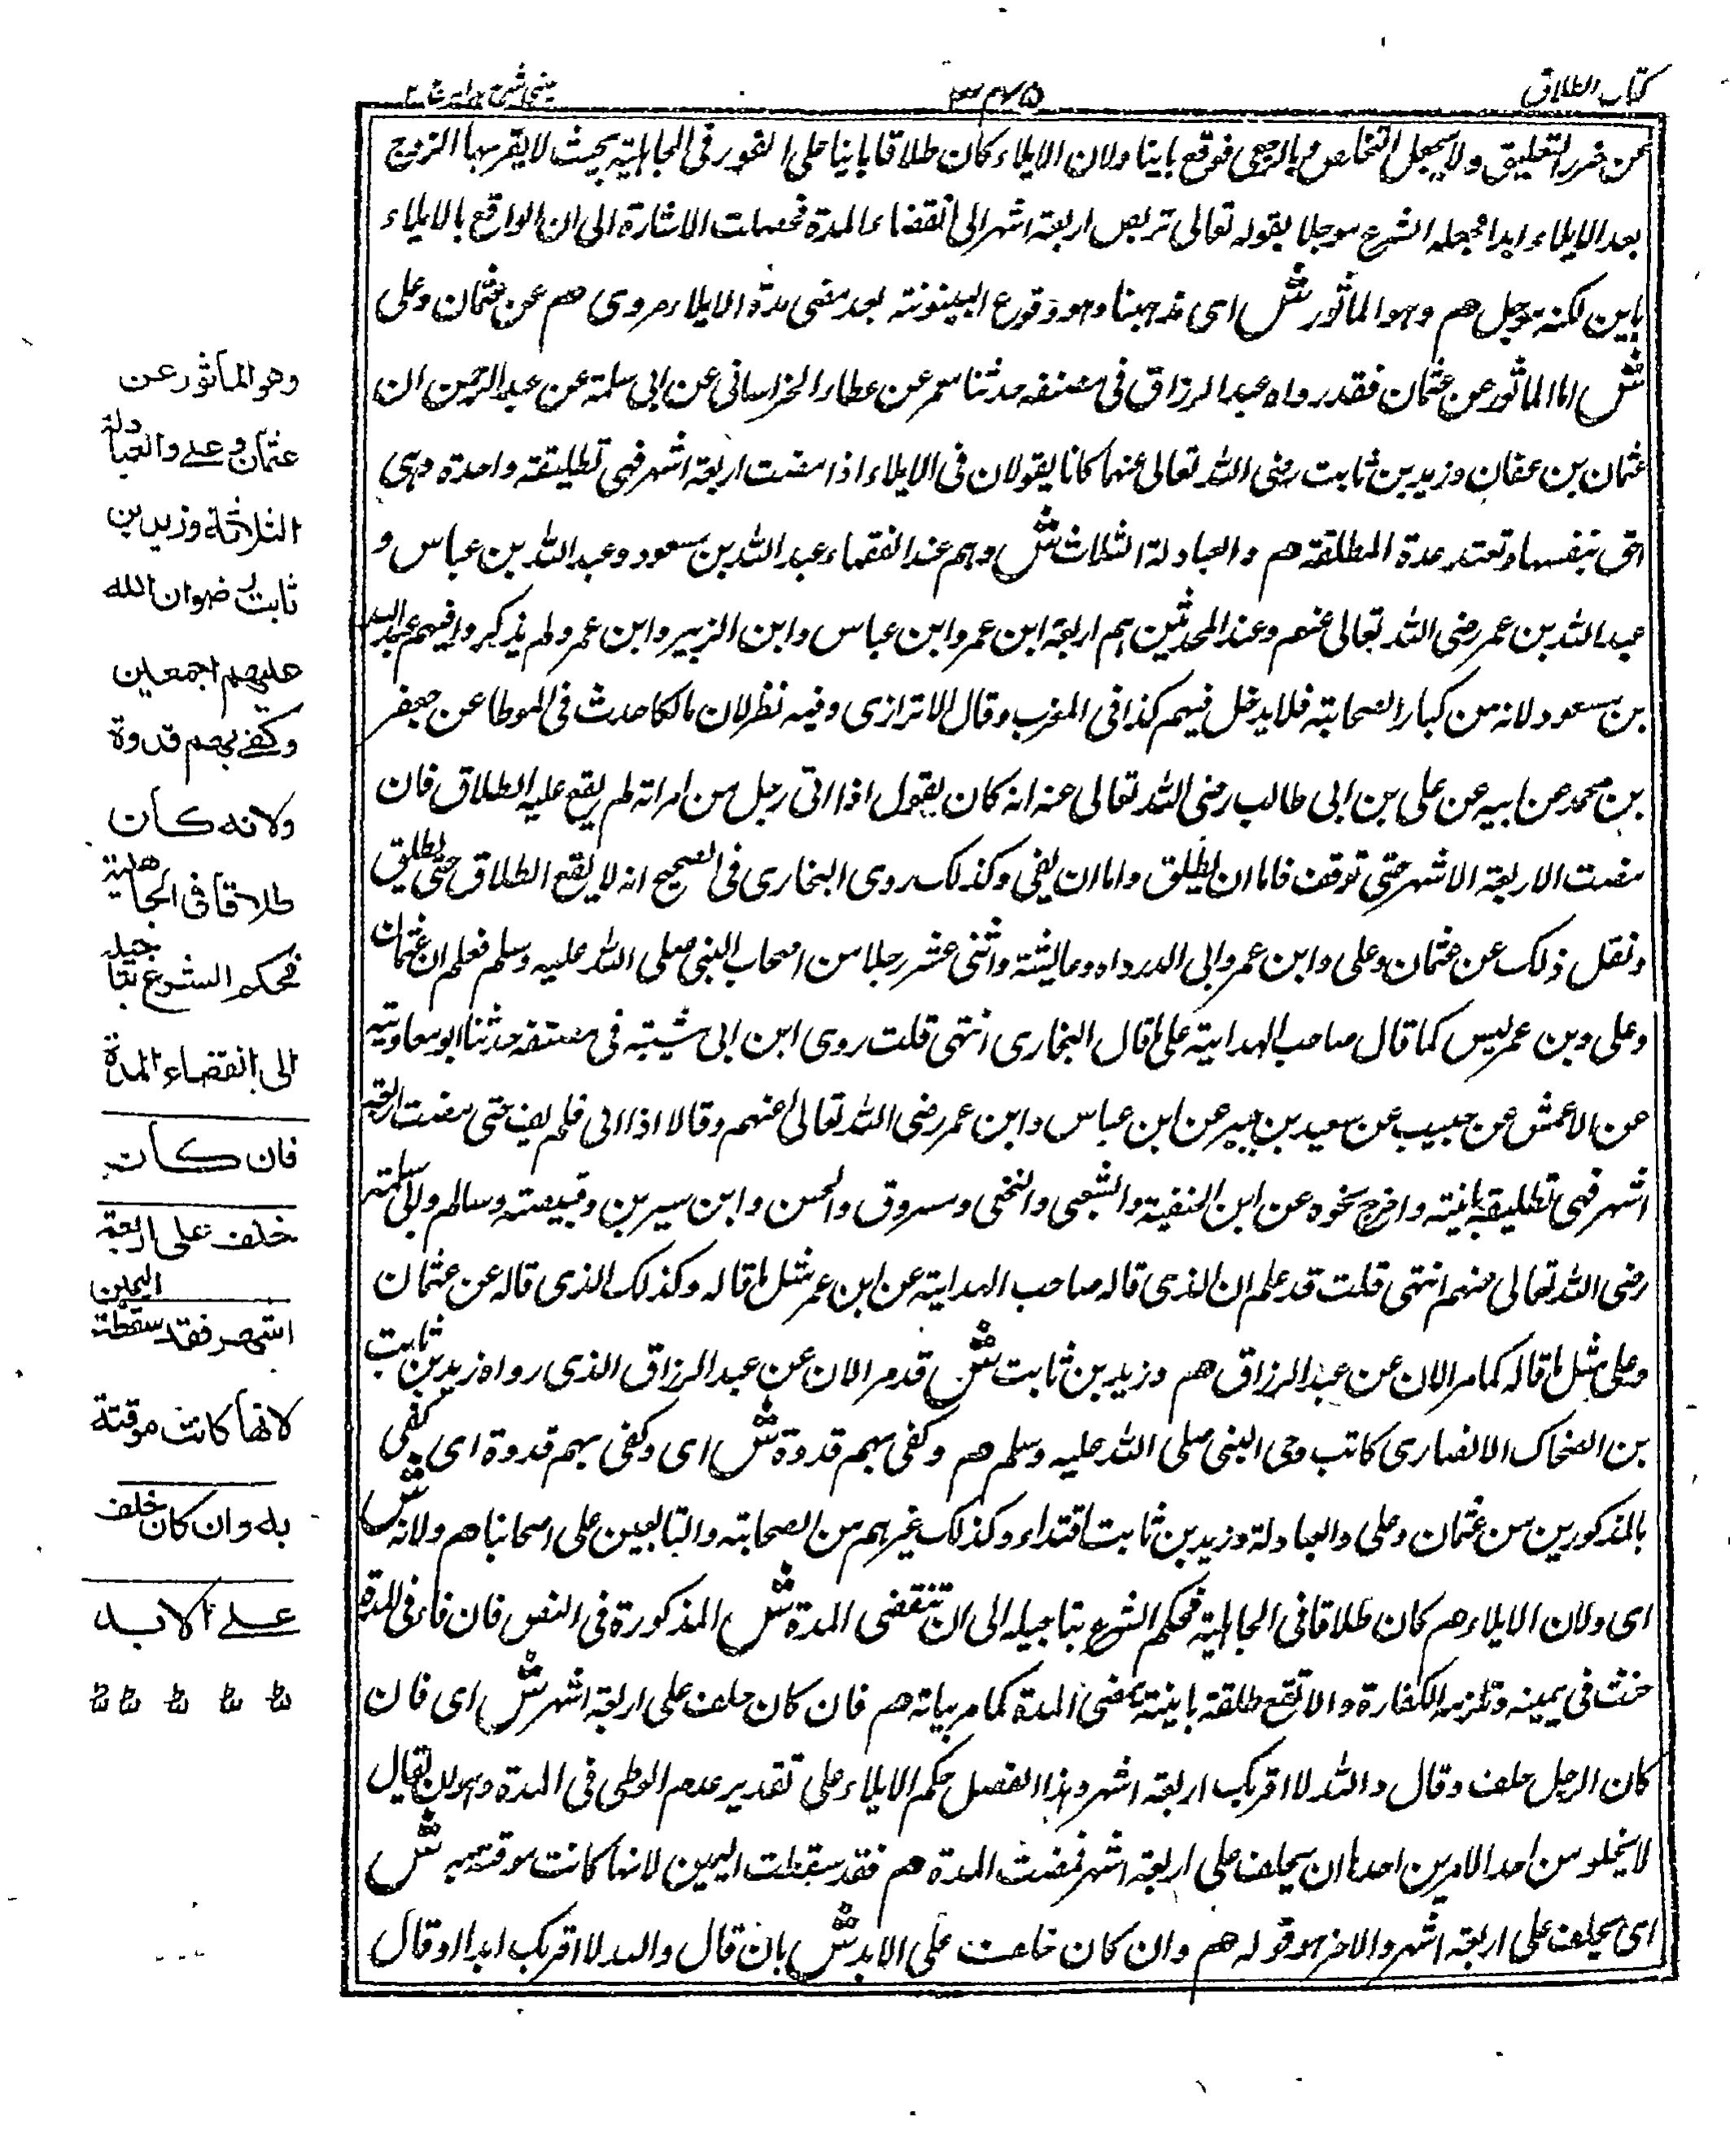 كتاب الطلاق
عن ضرر التعليق ولا يحصل التخلص بالرجعى فوقع باينا ولان الايلاء كان طلاقا باينا على الفور فى الجاهلية بحيث لا يقربها الزوج
بعد الايلاء ابدا فجعله الشرع موجلا بقوله تعالى تربص اربعة اشهر الى انقضاء المدة فحصلت الاشارة الى ان الواقع بالايلاء
باين لكنه موجل هم وهو الماثور ش اى مذهبنا وهو وقوع البينونة بعد مضى مدة الايلاء مروى هم عن عثمان وعلى
ش اما الماثور عن عثمان فقد رواه عبد الرزاق فى مصنفه حدثنا معمر عن عطاء الخراسانى عن ابى سلمة عن عبد الرحمن ان
عثمان بن عفان وزيد بن ثابت رضى الله تعالى عنهما كانا يقولان فى الايلاء اذا مضت اربعة اشهر فهى تطليقة واحدة وهى
احق بنفسها وتعتد عدة المطلقة هم والعبادلة الثلاث ش وهم عند الفقهاء عبد الله بن مسعود وعبد الله بن عباس و
عبد الله بن عمر رضى الله تعالى عنهم وعند المحدثين هم اربعة ابن عمر وابن عباس وابن الزبير وابن عمر ولم يذكروا فيهم عبد الله
بن مسعود لانه من كبار الصحابة فلا يدخل فيهم كذا فى المغرب وقال الاترازى وفيه نظر لان مالكا حدث فى الموطا عن جعفر
بن محمد عن ابيه عن على بن ابى طالب رضى الله تعالى عنه انه كان يقول اذا الى رجل من امراته لم يقع عليه الطلاق فان
مضت الاربعة الاشهر حتى توقف فاما ان يطلق واما ان يفى وكذلك روى البخارى فى الصحيح انه لا يقع الطلاق حتى يطلق
ونقل ذلك عن عثمان وعلى وابن عمر وابى الدرداء وعايشة واثنى عشر رجلا من اصحاب النبى صلى الله عليه وسلم فعلم ان عثمان
وعلى وبن عمر ليس كما قال صاحب الهداية على ما قال البخارى انتهى قلت روى ابن ابى شيبة فى مصنفه حدثنا ابو معاوية
عن الاعمش عن حبيب عن سعيد بن جبير عن ابن عباس وابن عمر رضى الله تعالى عنهم وقالا اذا الى فلم يف حتى مضت اربعة
اشهر فهى تطليقة باينة واخرج نحوه عن ابن الحنفية والشعبى والنخعى ومسروق والحسن وابن سيرين وقبيصة وسالم وابى سلمة
رضى الله تعالى عنهم انتهى قلت قد علم ان الذى قاله صاحب الهداية عن ابن عمر مثل ما قاله وكذلك الذى قاله عن عثمان
وعلى مثل ما قاله كما مر الان عن عبد الرزاق هم وزيد بن ثابت ش قد مر الان عن عبد الرزاق الذى رواه زيد بن ثابت
بن الضحاك الانصارى كاتب وحى النبى صلى الله عليه وسلم هم وكفى بهم قدوة ش اى وكفى بهم قدوة اى كفى
بالمذكورين من عثمان وعلى والعبادلة وزيد بن ثابت اقتداء وكذلك غيرهم من الصحابة والتابعين على اصحابنا هم ولانه ش
اى ولان الايلاء هم كان طلاقا فى الجاهلية فحكم الشرع بتاجيله الى ان تنقضى المدة ش المذكورة فى النص فان فاء فى المدة
حنث فى يمينه وتلزمه الكفارة والا تقع طلقة باينة بمضى المدة كما مر بيانه هم فان كان حلف على اربعة اشهر ش اى فان
كان الرجل حلف وقال والله لا اقربك اربعة اشهر وهذا الفصل حكم الايلاء على تقدير عدم الوطى فى المدة وهو ان يقال
لا يخلو من احد الامرين احدها ان يحلف على اربعة اشهر فمضت المدة هم فقد سقطت اليمين لانها كانت موقتة به ش
اى يحلف على اربعة اشهر والاخر هو قوله هم وان كان حلف على الابد ش بان قال والله لا اقربك ابدا او قال
وهو الماثور عن
عثمان وعلى والعبادلة
الثلاثة وزيد بن
ثابت رضوان الله
عليهم اجمعين
وكفے بهم قدوة
ولانه كان
طلاقا فى الجاهلية
فحكم الشرع بتاجيله
الى انقضاء المدة
فان كان
حلف على اربعة
اشهر فقد سقطت اليمين
لانها كانت موقتة
به وان كان حلف
علے الابد